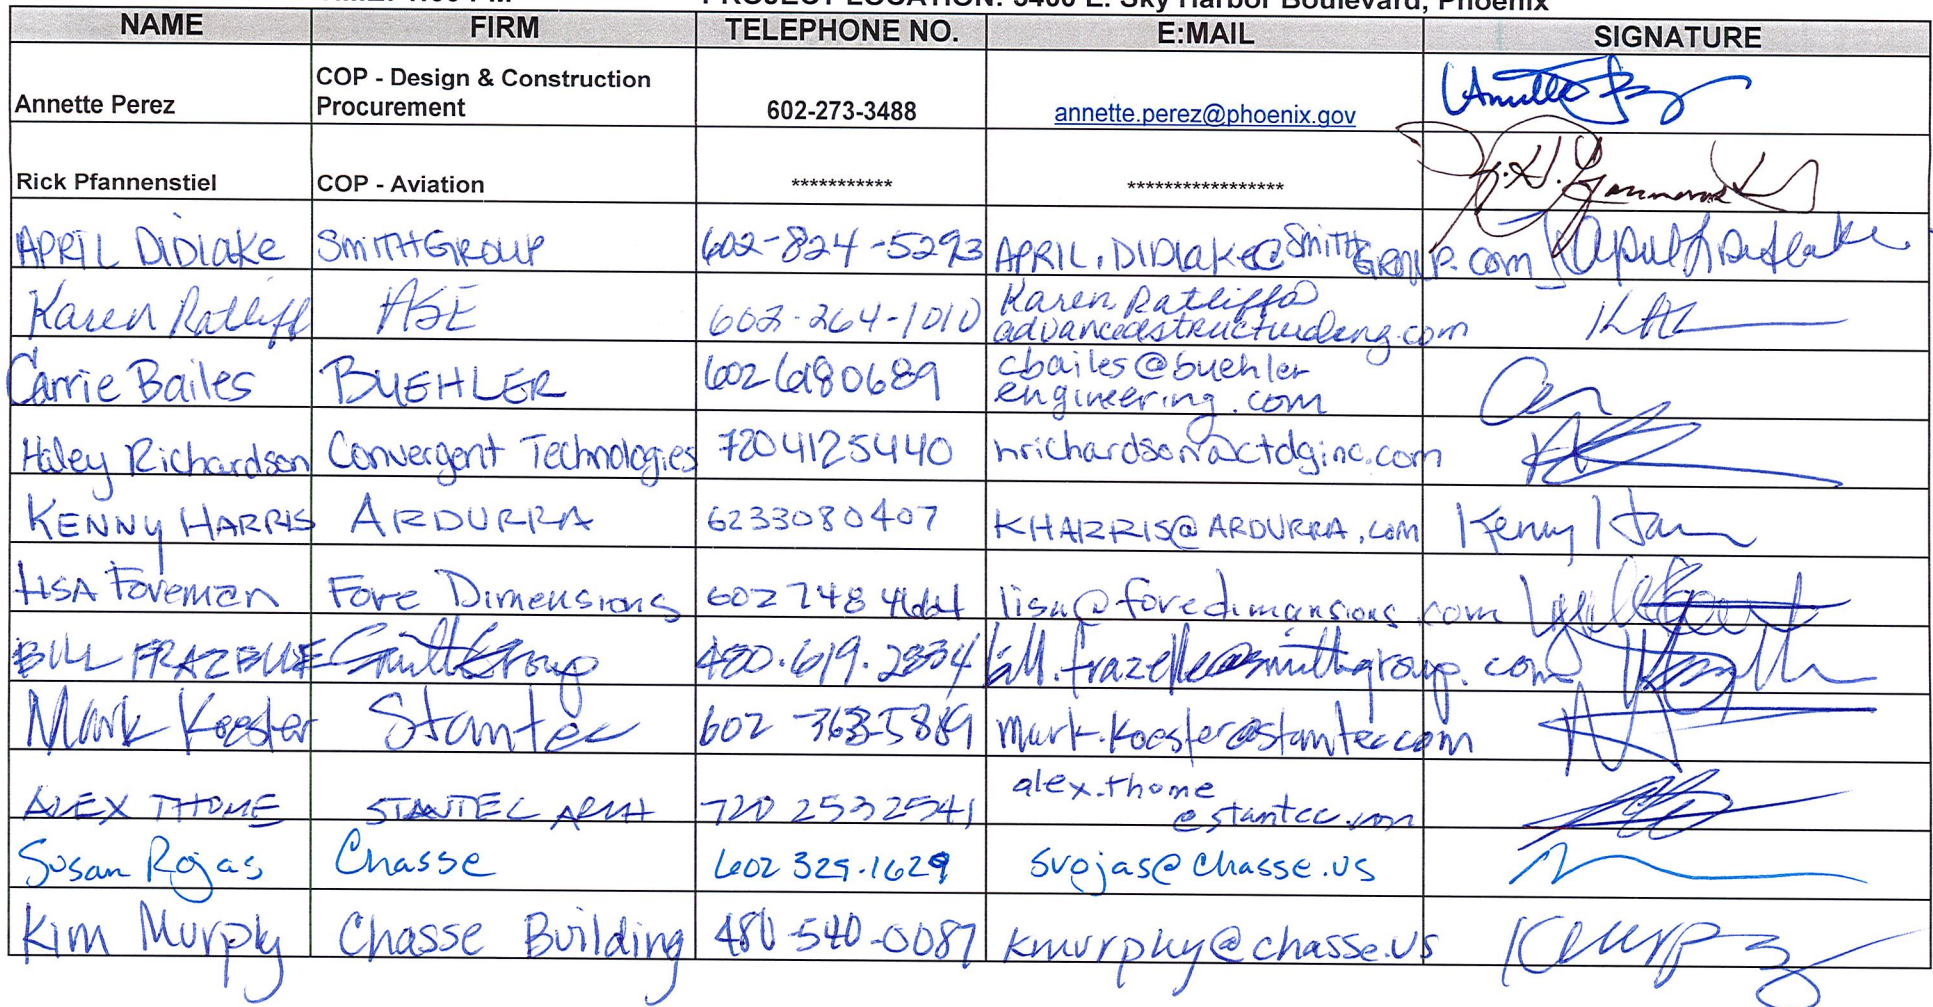 PROJECT LOCATION: 3400 E. Sky Harbor Boulevard, Phoenix
NAME FIRM TELEPHONE NO. E:MAIL SIGNATURE
Annette Perez COP - Design & Construction Procurement 602-273-3488 annette.perez@phoenix.gov
Rick Pfannenstiel COP - Aviation *********** *****************
APRIL DIDLAKE SMITHGROUP 602-824-5293 APRIL.DIDLAKE@SMITHGROUP.com
Karen Ratliff ASE 602-264-1010 Karen.Ratliff@
advancedstructuraleng.com
Carrie Bailes BUEHLER 602 6180689 cbailes@buehler
engineering.com
Haley Richardson Convergent Technologies 7204125440 hrichardson@ctdginc.com
KENNY HARRIS ARDURRA 6233080407 KHARRIS@ARDURRA.COM Kenny Harr
LISA Foreman Fore Dimensions 602 748 lisa@foredimensions.com
BILL FRAZELLE SmithGroup 480.619.2334 bill.frazelle@smithgroup.com
Mark Koester Stantec 602-363-5889 mark.koester@stantec.com
ALEX THOME STANTEC ARCH 720 2532541 alex.thome
@stantec.com
Susan Rojas Chasse 602 329.1629 srojas@chasse.us
Kim Murphy Chasse Building 480-540-0087 kmurphy@chasse.us